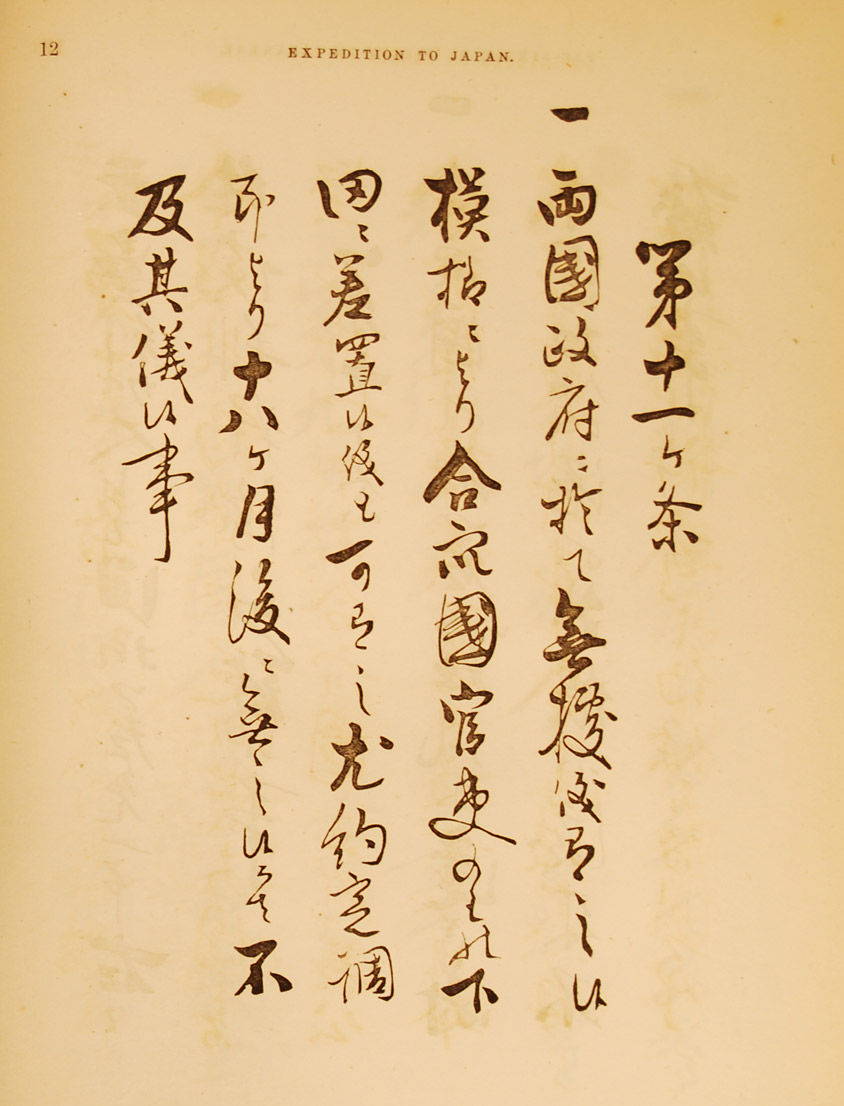 12
EXPEDITION TO JAPAN.
第十一ケ条
一 兩國政府ニ於て無據儀有之候
模様ニより合衆國官吏のもの下
田ニ差置候儀も可有之尤約定調
印より十八ケ月後ニ無之候而は不
及其儀候事